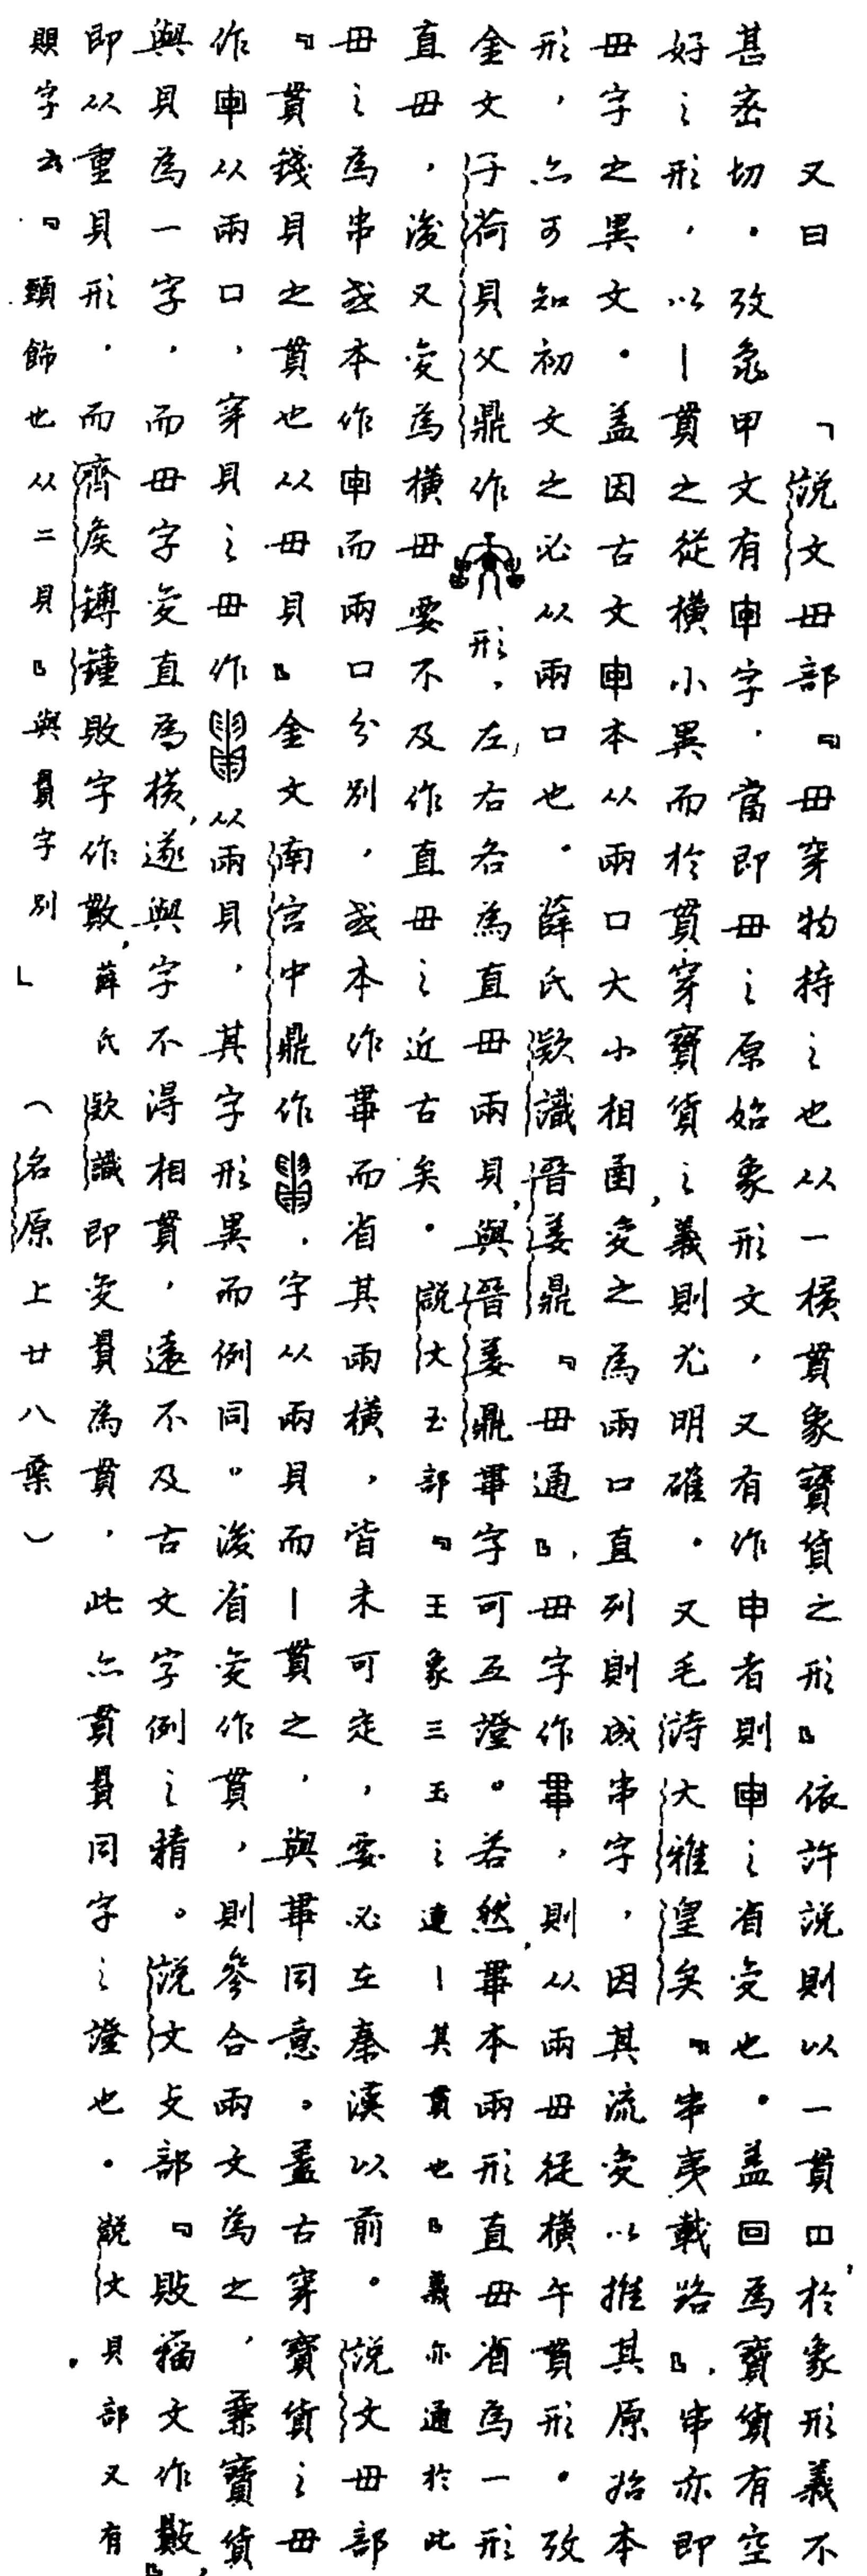 又曰「說文毌部『毌穿物持之也从一橫貫象寶貨之形』依許說則以一貫口，於象形義不
甚密切．攷龜甲文有申字．當即毌之原始象形文，又有作申者則申之省變也．蓋回爲寶貨有空
好之形，以丨貫之從橫小異而於貫穿寶貨之義則尤明確．又毛詩大雅皇矣『串夷載路』，串亦即
毌字之異文．蓋因古文申本从兩口大小相函，變之為兩口直列則成串字，因其流變以推其原始本
形，亦可知初文之必从兩口也．薛氏款識晉姜鼎『毌通』，毌字作，則从兩毌從橫午貫形．攷
金文子荷貝父鼎作形，左右各為直毌兩貝，與晉姜鼎字可互證。若然，本兩形直毌省為一形
直毌，後又變為橫毌要不及作直毌之近古矣．說文玉部『王象三玉之連丨其貫也』義亦通於此
毌之為串或本作申而兩口分別，或本作而省其兩橫，皆未可定，要必在秦漢以前。說文毌部
『貫錢貝之貫也从毌貝』金文南宮中鼎作．字从兩貝而丨貫之，與同意。蓋古穿寶貨之毌
作申从兩口，穿貝之毌作，从兩貝，其字形異而例同。後省變作貫，則參合兩文為之，棄寶貨
與貝為一字，而毌字變直為橫，遂與字不得相貫，遠不及古文字例之精。說文攴部『敗籀文作敗』，
即从重貝形．而齊侯鎛鐘敗字作，薛氏款識即變為貫，此亦貫同字之證也．說文貝部又有
賏字云『頸飾也从二貝』與字別」（名原上廿八葉）